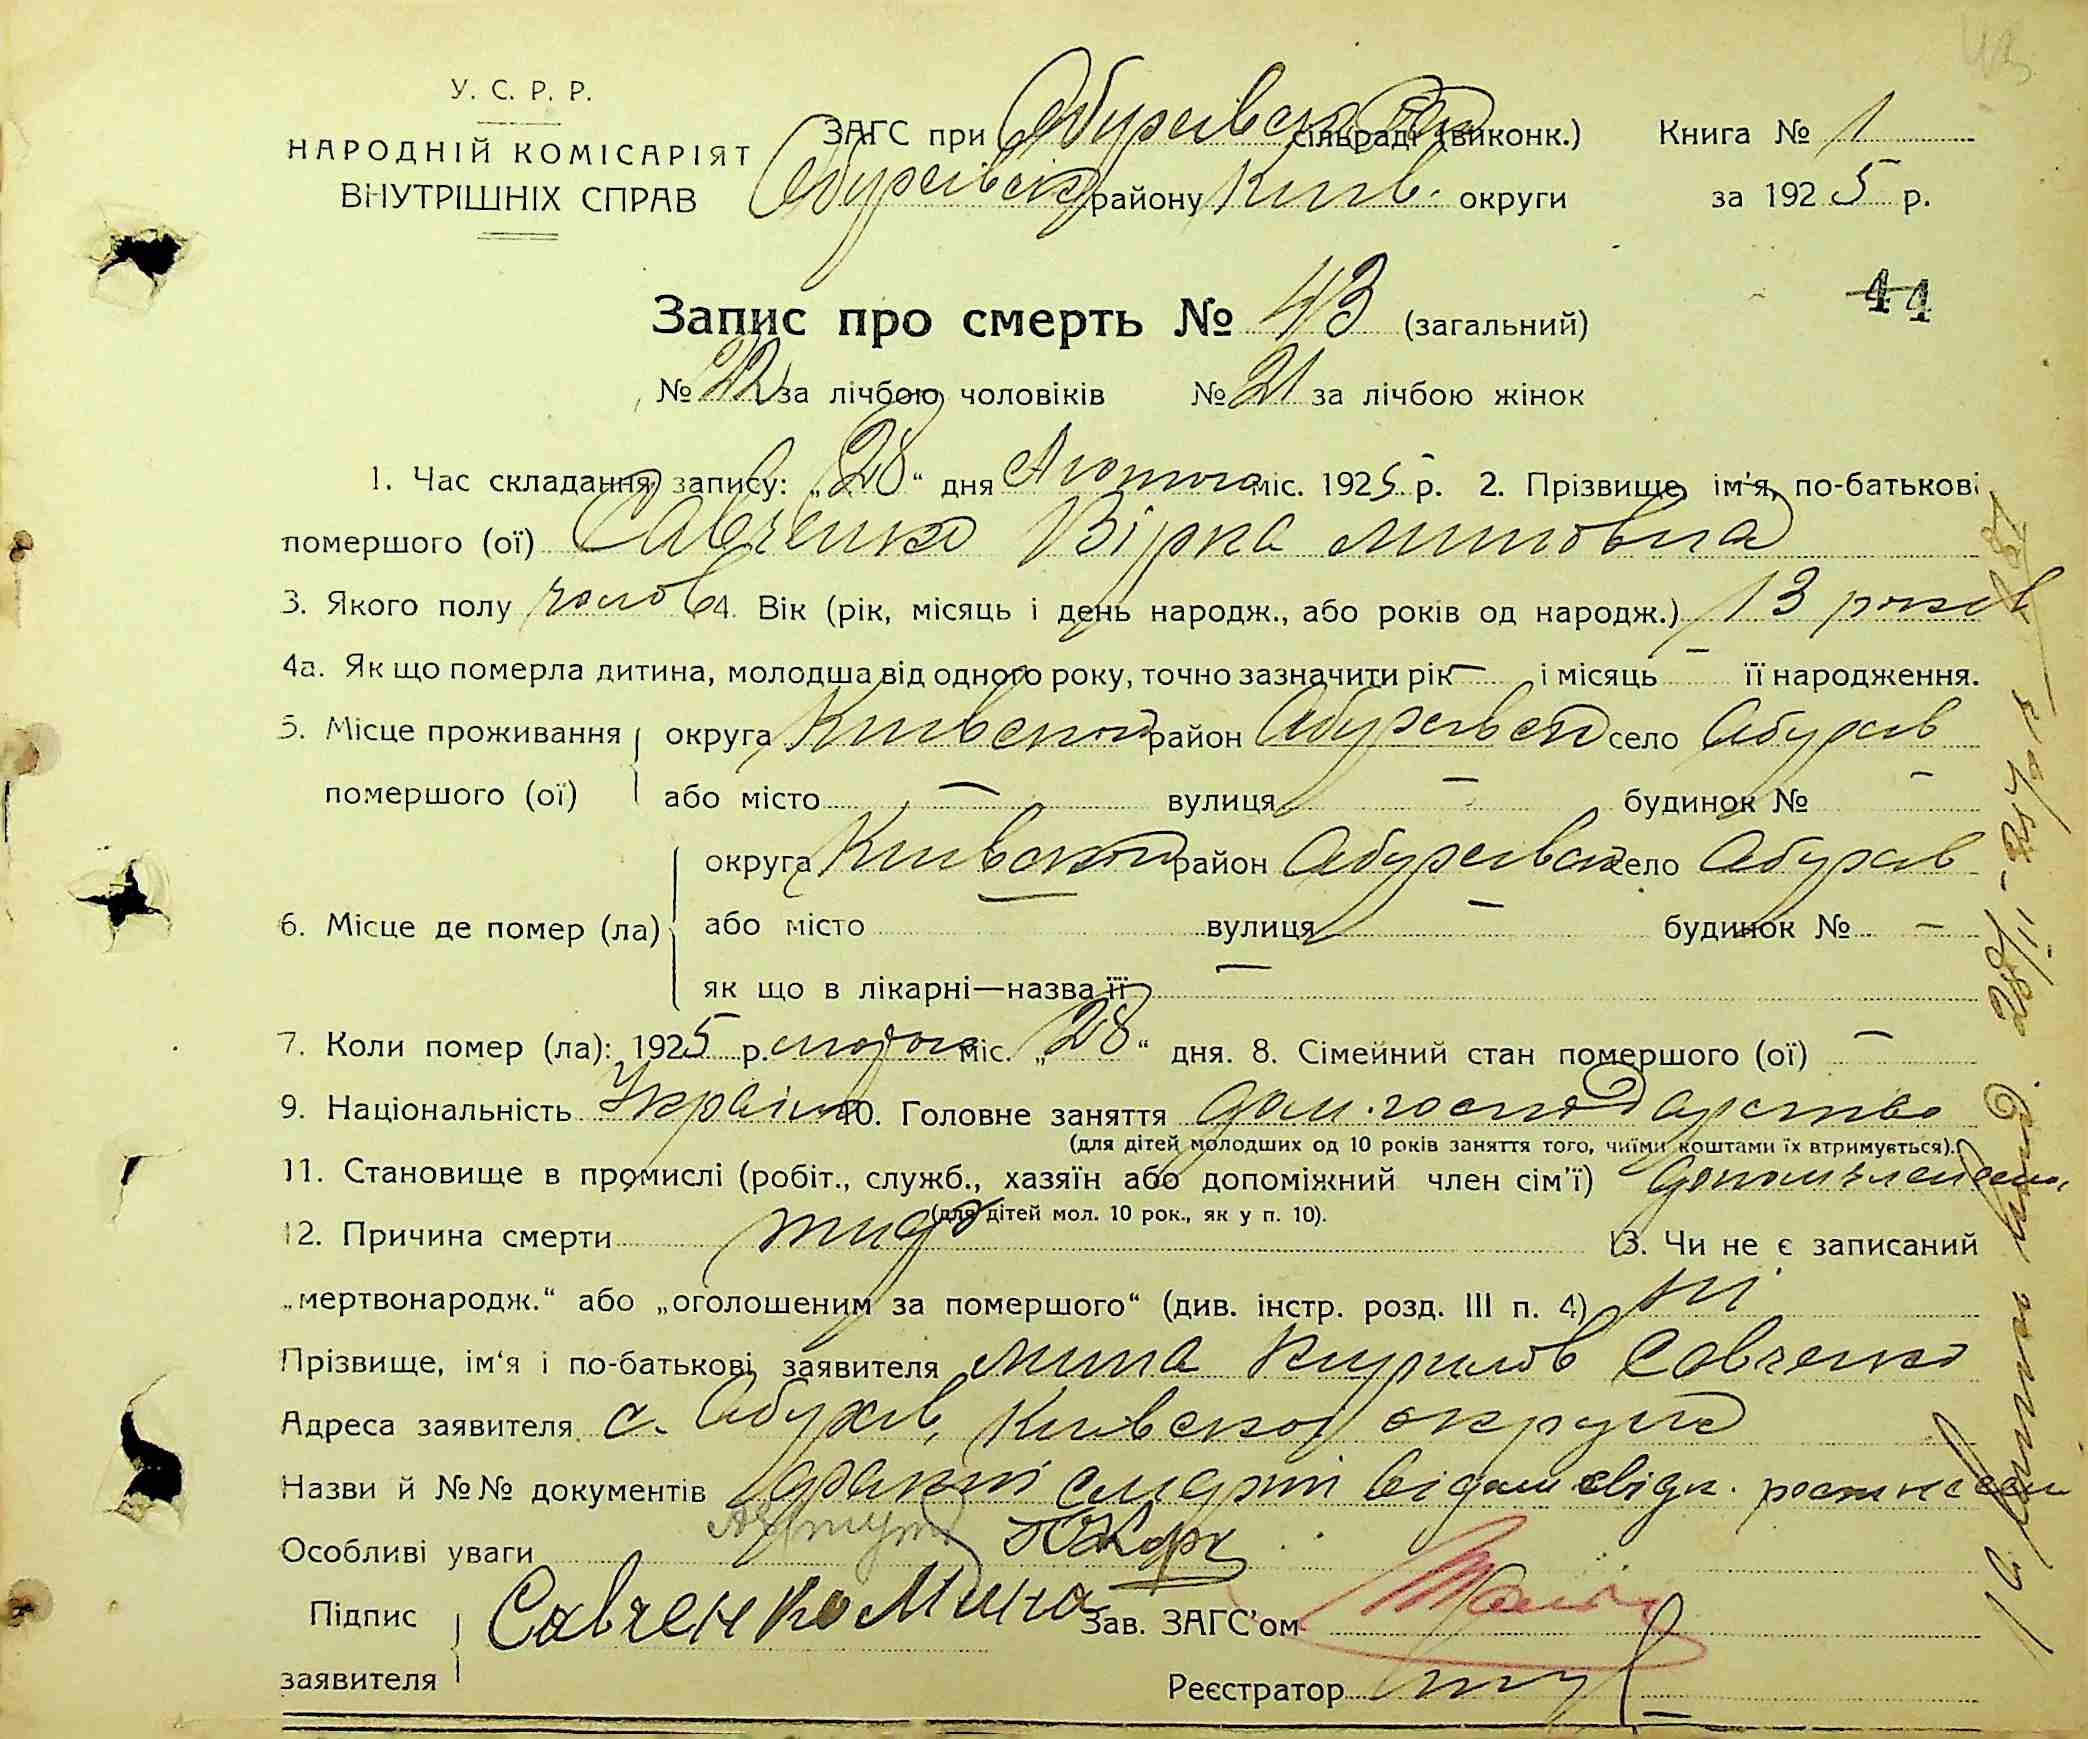 У. С. Р. Р.
НАРОДНІЙ КОМІСАРІЯТ
ВНУТРІШНІХ СПРАВ
ЗАГС при Обухівськ сільраді (виконк.)
Обухівськ району Киів. округи
Книга № 1
за 1925 р.
43
44
Запис про смерть № 43 (загальний)
№ 22 за лічбою чоловіків № 21 за лічбою жінок
1. Час складання запису: „28“ дня Лютого міс. 1925 р. 2. Прізвище, ім'я, по-батькові
помершого (ої) Савченко Вірка Миновна
3. Якого полу чолов 4. Вік (рік, місяць і день народж., або років од народж.) 13 років
4а. Як що померла дитина, молодша від одного року, точно зазначити рік — і місяць — її народження.
5. Місце проживання помершого (ої) округа Киівської район Обухівськ село Обухів
або місто — вулиця — будинок № —
6. Місце де помер (ла) округа Киівської район Обухівськ село Обухів
або місто — вулиця — будинок № —
як що в лікарні—назва її —
7. Коли помер (ла): 1925 р. лютого міс. „28“ дня. 8. Сімейний стан помершого (ої) —
9. Національність Україн 10. Головне заняття дом. господарство
(для дітей молодших од 10 років заняття того, чиїми коштами їх втримується).
11. Становище в промислі (робіт., служб., хазяїн або допоміжний член сім'ї) допом член сем.
(для дітей мол. 10 рок., як у п. 10).
12. Причина смерти тиф 13. Чи не є записаний
„мертвонародж.“ або „оголошеним за помершого“ (див. інстр. розд. III п. 4) ні
Прізвище, ім'я і по-батькові заявителя Мина Кирилов Савченко
Адреса заявителя с. Обухів, Киівської округи
Назви й №№ документів факт смерті
Особливі уваги
Підпис заявителя Савченко Мина Зав. ЗАГС'ом
Реєстратор